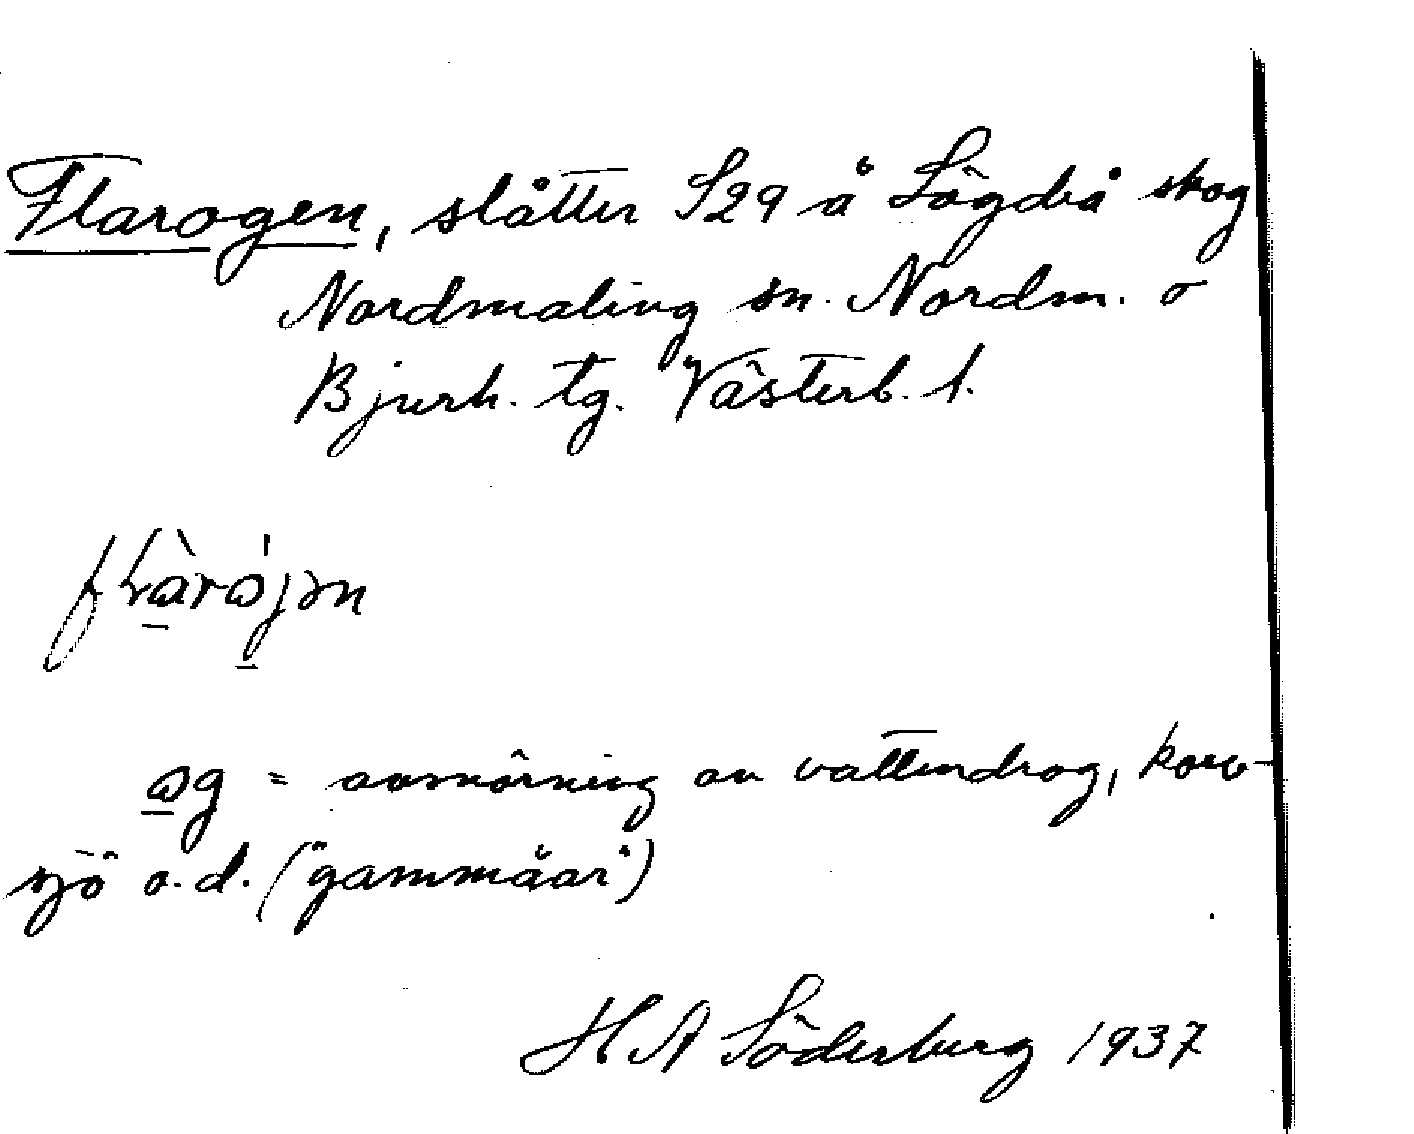 Flarogen, slåtter S29 å Lögdeå skog
Nordmaling sn. Nordm. o
Bjurh. tg. Västerb. l.
ɷg = avsnörning av vattendrag, korv-
sjö o.d. ("gammåar")
H A Söderberg 1937